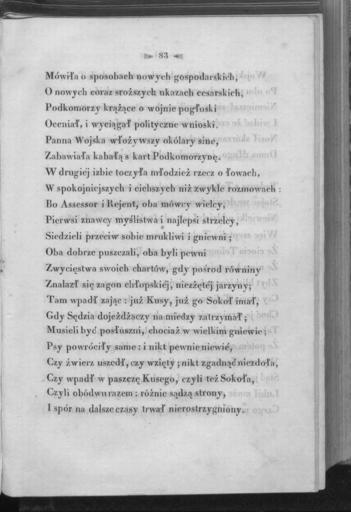 83
Mówiła o sposobach nowych gospodarskich,
O nowych coraz sroższych ukazach cesarskich,
Podkomorzy krążące o wojnie pogłoski
Oceniał, i wyciągał polityczne wnioski.
Panna Wojska włożywszy okólary sine,
Zabawiała kabałą s kart Podkomorzynę.
W drugiej izbie toczyła młodzież rzecz o łowach,
W spokojniejszych i cichszych niż zwykle rozmowach :
Bo Assessor i Rejent, oba mówcy wielcy,
Pierwsi znawcy myślistwa i najlepsi strzelcy,
Siedzieli przeciw sobie mrukliwi i gniewni ;
Oba dobrze puszczali, oba byli pewni
Zwycięstwa swoich chartów, gdy pośród równiny
Znalazł się zagon chłopskiéj, niezżętéj jarzyny;
Tam wpadł zając : już Kusy, już go Sokoł imał,
Gdy Sędzia dojeżdżaczy na miedzy zatrzymał ;
Musieli być posłuszni, chociaż w wielkim gniewie ;
Psy powróciły same : i nikt pewnie niewié,
Czy źwierz uszedł, czy wzięty ; nikt zgadnąć niezdoła,
Czy wpadł w paszczę Kusego, czyli też Sokoła,
Czyli obódwu razem : różnie sądzą strony,
I spór na dalsze czasy trwał nierostrzygniony.